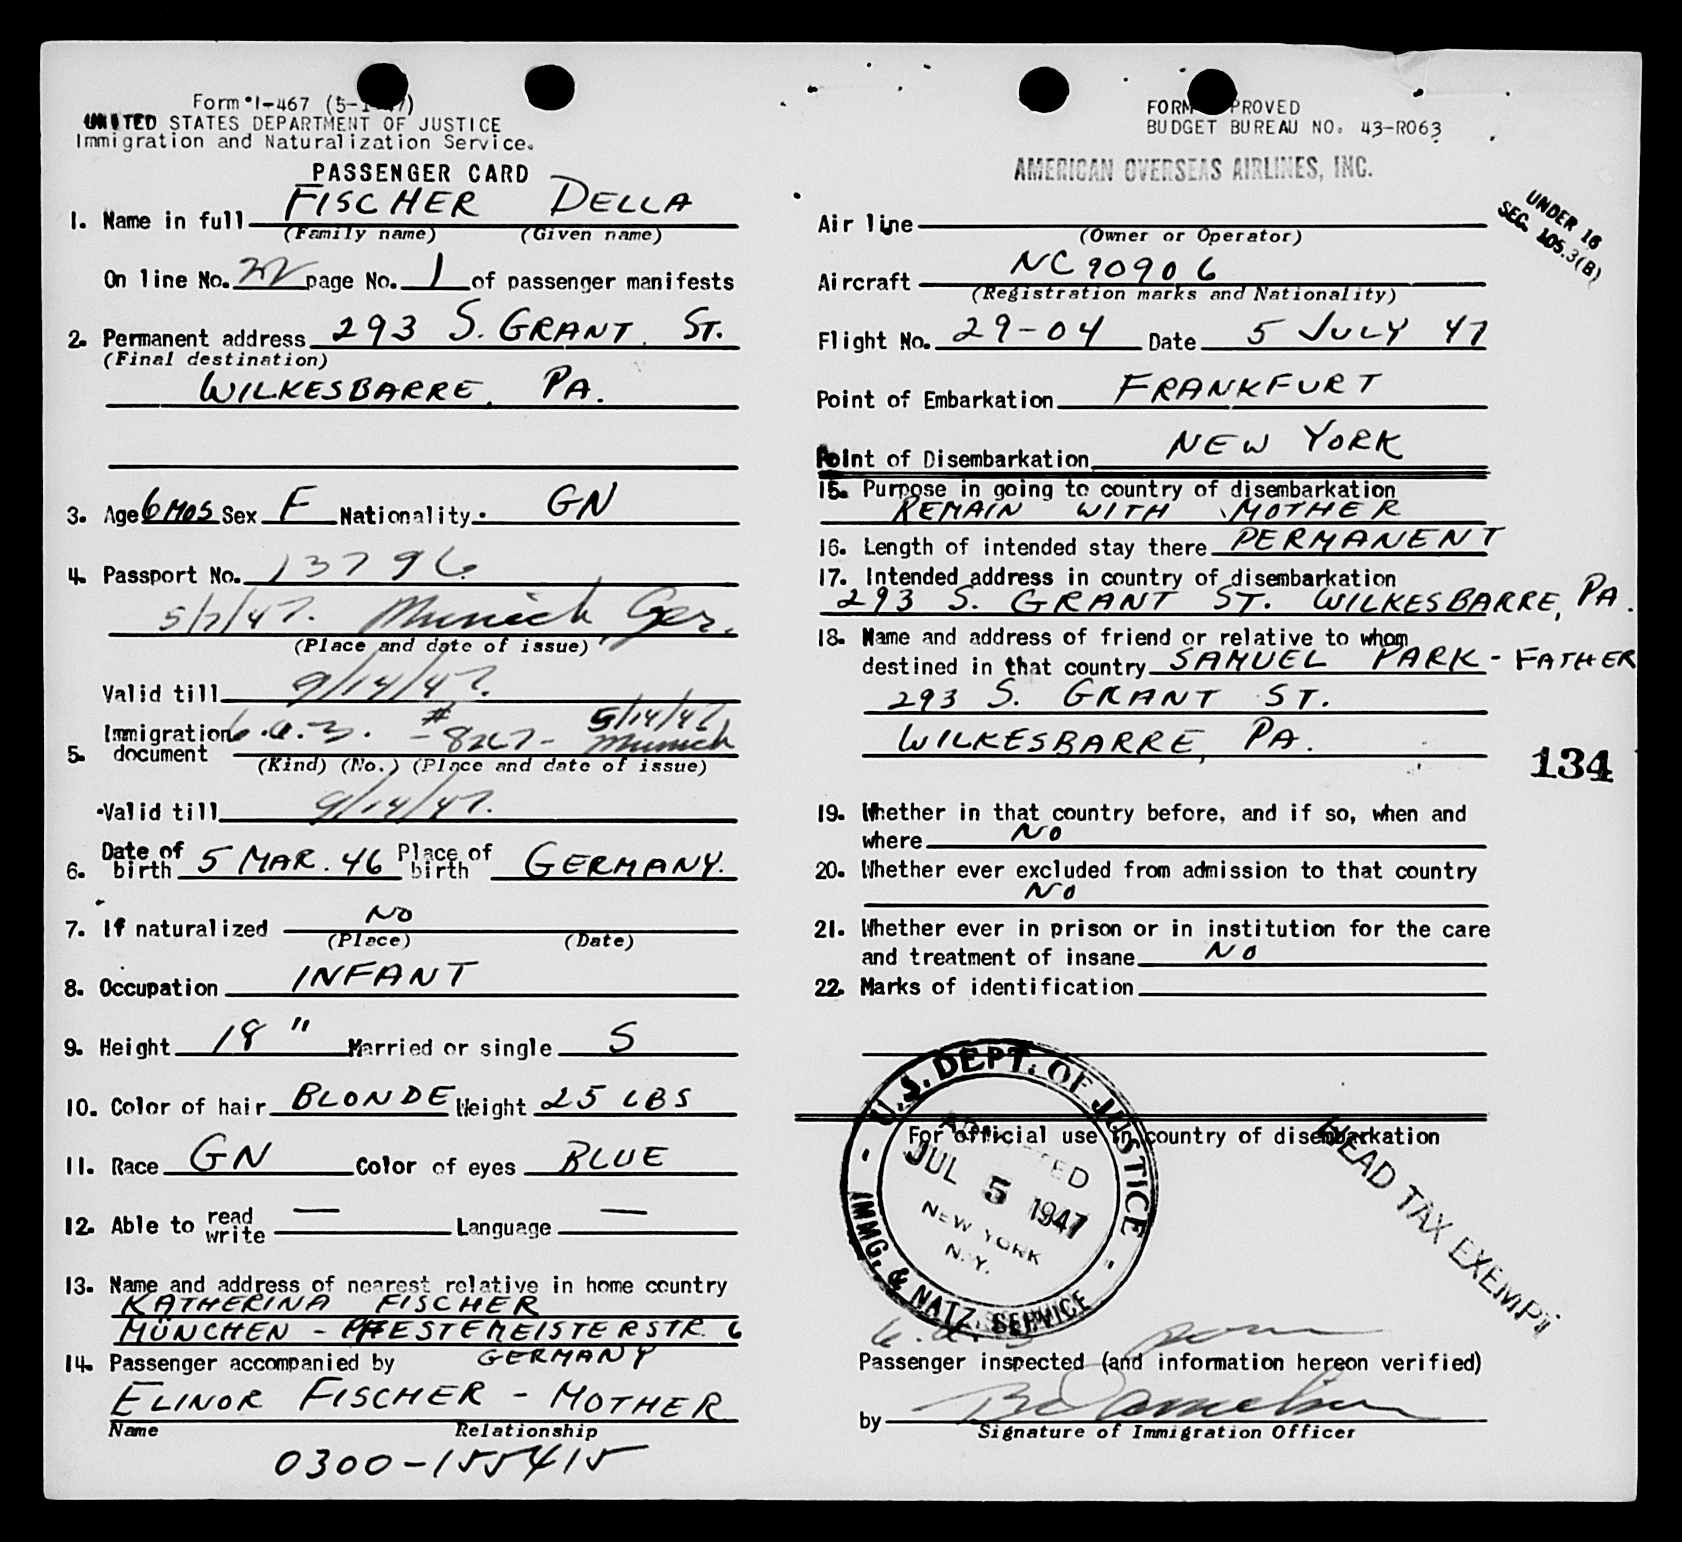 Form I-467 (5-1-47)
UNITED STATES DEPARTMENT OF JUSTICE
Immigration and Naturalization Service.
PASSENGER CARD
1. Name in full FISCHER DELLA
(Family name) (Given name)
On line No. 22 page No. 1 of passenger manifests
2. Permanent address 293 S. GRANT. ST.
(Final destination)
WILKESBARRE, PA.
3. Age 6 MOS Sex F Nationality GN
4. Passport No. 13796
5/7/47. Munich Ger.
(Place and date of issue)
Valid till 9/14/47.
5. Immigration document # -8267- 5/14/47 Munich
(Kind) (No.) (Place and date of issue)
Valid till 9/14/47.
6. Date of birth 5 MAR. 46 Place of birth GERMANY.
7. If naturalized NO
(Place) (Date)
8. Occupation INFANT
9. Height 18" Married or single S
10. Color of hair BLONDE Weight 25 LBS
11. Race GN Color of eyes BLUE
12. Able to read write — Language —
13. Name and address of nearest relative in home country
KATHERINA FISCHER
MÜNCHEN - PFESTEMEISTERSTR. 6
GERMANY
14. Passenger accompanied by
ELINOR FISCHER - MOTHER
Name Relationship
0300-155415
FORM APPROVED
BUDGET BUREAU NO. 43-R063
AMERICAN OVERSEAS AIRLINES, INC.
UNDER 16
SEC. 105.3(B)
Air line
(Owner or Operator)
Aircraft NC90906
(Registration marks and Nationality)
Flight No. 29-04 Date 5 JULY 47
Point of Embarkation FRANKFURT
Point of Disembarkation NEW YORK
15. Purpose in going to country of disembarkation
REMAIN WITH MOTHER
16. Length of intended stay there PERMANENT
17. Intended address in country of disembarkation
293 S. GRANT ST. WILKESBARRE, PA.
18. Name and address of friend or relative to whom
destined in that country SAMUEL PARK - FATHER
293 S. GRANT ST.
WILKESBARRE, PA.
134
19. Whether in that country before, and if so, when and
where NO
20. Whether ever excluded from admission to that country
NO
21. Whether ever in prison or in institution for the care
and treatment of insane NO
22. Marks of identification
For official use in country of disembarkation
U.S. DEPT. OF JUSTICE
ADMITTED
JUL 5 1947
NEW YORK
N.Y.
IMMG. & NATZ. SERVICE
HEAD TAX EXEMPT
Passenger inspected (and information hereon verified)
by
Signature of Immigration Officer